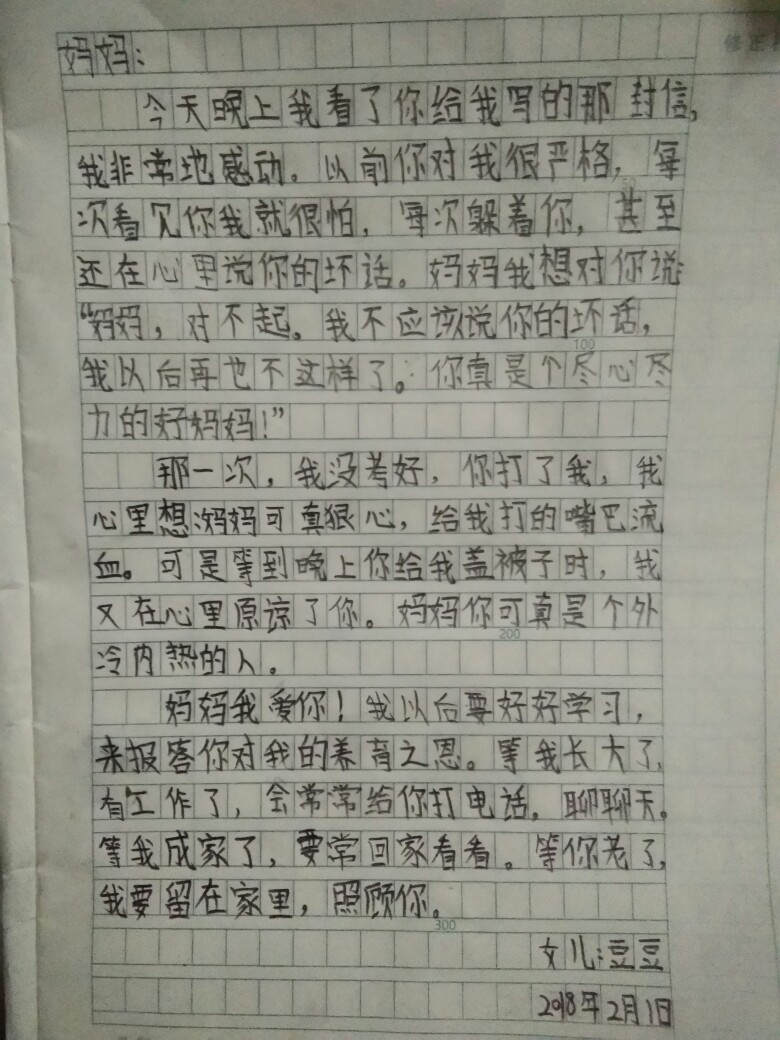 修正
妈妈：
今天晚上我看了你给我写的那封信，
我非常地感动。以前你对我很严格，每
次看见你我就很怕，每次躲着你，甚至
还在心里说你的坏话。妈妈我想对你说：
“妈妈，对不起。我不应该说你的坏话，
100
我以后再也不这样了。你真是个尽心尽
力的好妈妈！”
那一次，我没考好，你打了我，我
心里想妈妈可真狠心，给我打的嘴巴流
血。可是等到晚上你给我盖被子时，我
又在心里原谅了你。妈妈你可真是个外
200
冷内热的人。
妈妈我爱你！我以后要好好学习，
来报答你对我的养育之恩。等我长大了，
有工作了，会常常给你打电话，聊聊天。
等我成家了，要常回家看看。等你老了，
我要留在家里，照顾你。
300
女儿：豆豆
2018年2月1日